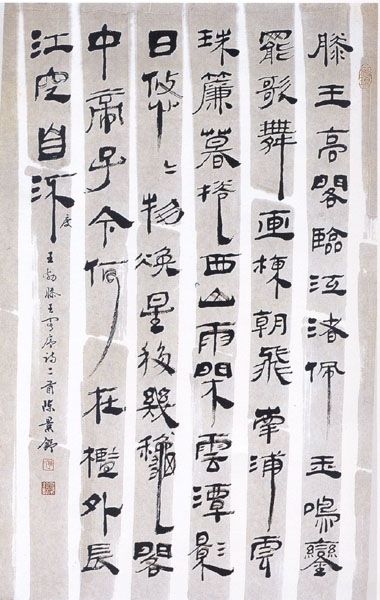 滕王高閣臨江渚佩玉鳴鸞
罷歌舞画棟朝飛南浦雲
珠簾暮捲西山雨閑雲潭影
日悠〻物換星移幾穐閣
中帝子今何在檻外長
江空自流度
王勃滕王閣序詩一首陳景舒